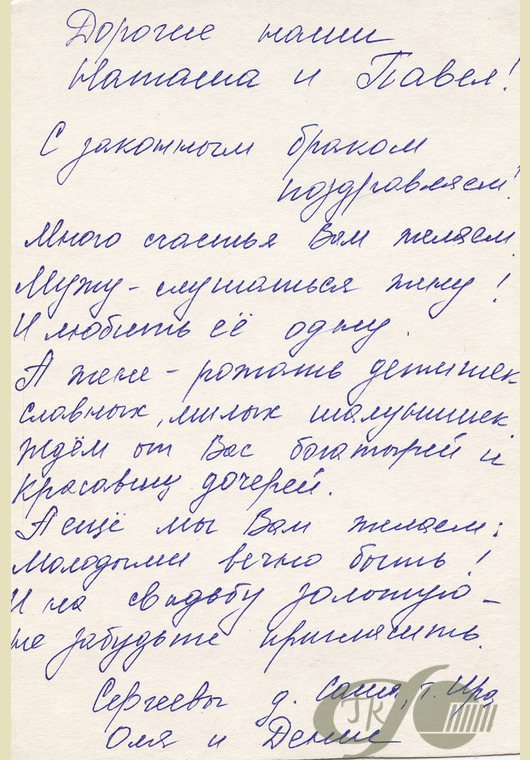 Дорогие наши
Наташа и Павел!
С законным браком
поздравляем!
Много счастья Вам желаем.
Мужу - слушаться жену!
И любить её одну.
А жене - рожать детишек
славных, милых шалунишек
Ждём от Вас богатырей и
красавиц дочерей.
А ещё мы Вам желаем:
Молодыми вечно быть!
И на свадьбу золотую -
не забудьте пригласить.
Сергеевы д. Саша, т. Ира
Оля и Денис